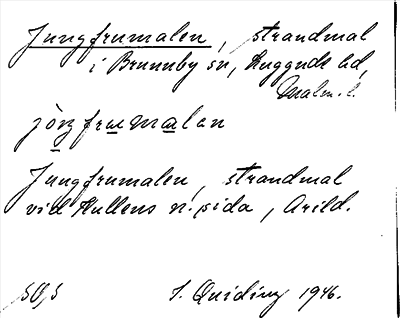 Jungfrumalen, strandmal
i Brunnby sn, Luggude hd,
Malm. l.
jòŋfrumalan
Jungfrumalen, strandmal
vid Kullens n. sida, Arild.
S. Quiding 1946.